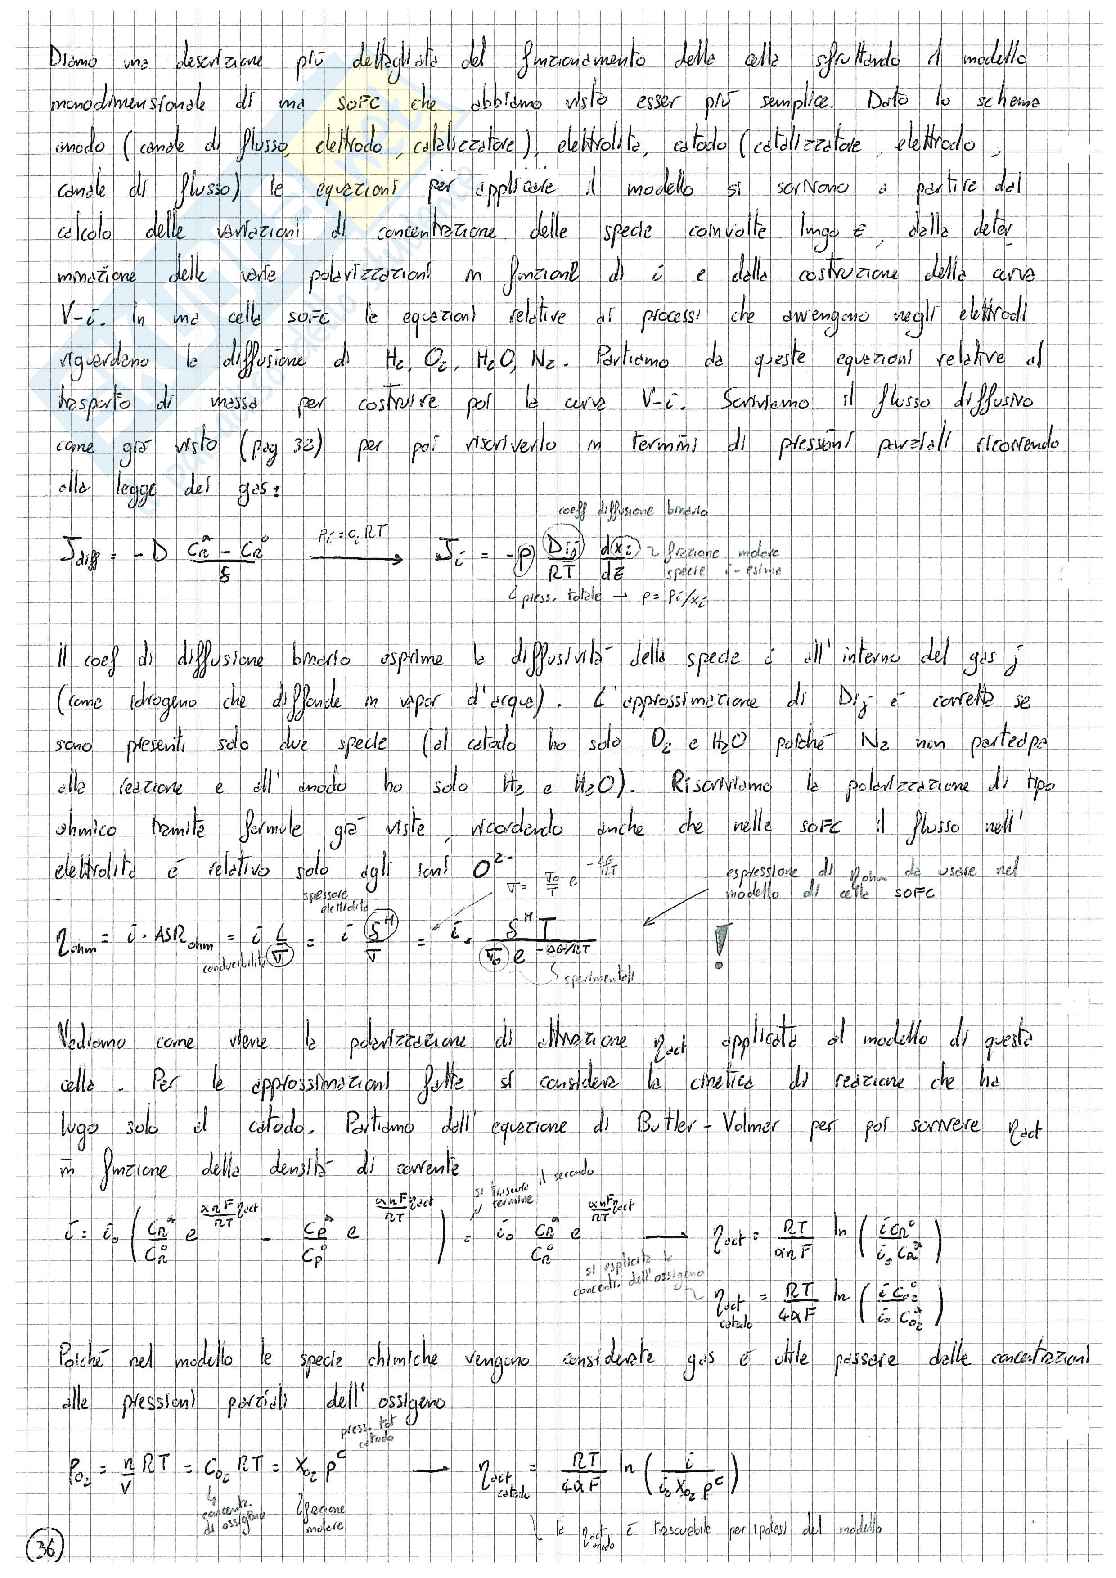 Diamo una descrizione più dettagliata del funzionamento della cella sfruttando il modello
monodimensionale di una SOFC che abbiamo visto esser più semplice. Dato lo schema
anodo (canale di flusso, elettrodo, catalizzatore), elettrolita, catodo (catalizzatore, elettrodo,
canale di flusso) le equazioni per applicare il modello si scrivono a partire dal
calcolo delle variazioni di concentrazione delle specie coinvolte lungo z, dalla deter
minazione delle varie polarizzazioni in funzione di i e dalla costruzione della curva
V-i. In una cella SOFC le equazioni relative ai processi che avvengono negli elettrodi
riguardano la diffusione di H2, O2, H2O, N2. Partiamo da queste equazioni relative al
trasporto di massa per costruire poi la curva V-i. Scriviamo il flusso diffusivo
come già visto (pag 32) per poi riscriverlo in termini di pressioni parziali ricorrendo
alla legge dei gas:
coeff diffusione binario
J_diff = -D (C_R^* - C_R^0)/δ → (p_i = c_i RT) J_i = -p (D_ij/RT) (dx_i/dz) frazione molare specie i-esima
press. totale → p = p_i/x_i
Il coef di diffusione binario esprime la diffusività della specie i all'interno del gas j
(come idrogeno che diffonde in vapor d'acqua). L'approssimazione di Dij è corretta se
sono presenti solo due specie (al catodo ho solo O2 e H2O poiché N2 non partecipa
alla reazione e all'anodo ho solo H2 e H2O). Riscriviamo la polarizzazione di tipo
ohmico tramite formule già viste, ricordando anche che nelle SOFC il flusso nell'
elettrolita è relativo solo agli ioni O^2-
spessore elettrolita
σ = σ0/T e^(-ΔG/RT)
espressione di η_ohm da usare nel
modello di cella SOFC
η_ohm = i · ASR_ohm = i L/σ = i δ^M/σ = i · δ^M T / (σ0 e^(-ΔG/RT)) !
conducibilità
sperimentali
Vediamo come viene la polarizzazione di attivazione η_act applicata al modello di questa
cella. Per le approssimazioni fatte si considera la cinetica di reazione che ha
luogo solo al catodo. Partiamo dall'equazione di Butler-Volmer per poi scrivere η_act
in funzione della densità di corrente
si trascura il secondo termine
i = i0 (C_R^*/C_R^0 e^(αnF/RT η_act) - C_P^*/C_P^0 e^(αnF/RT η_act)) = i0 C_R^*/C_R^0 e^(αnF/RT η_act) → η_act = RT/(αnF) ln (i C_R^0 / i0 C_R^*)
si esplicita la
concentr. dell'ossigeno
η_act catodo = RT/(4αF) ln (i C_O2^0 / i0 C_O2^*)
Poiché nel modello le specie chimiche vengono considerate gas è utile passare dalle concentrazioni
alle pressioni parziali dell'ossigeno
press. tot catodo
p_O2 = n/V RT = C_O2 RT = X_O2 p^c → η_act catodo = RT/(4αF) ln (i / (i0 X_O2 p^c))
concentr. di ossigeno
frazione molare
la η_act anodo è trascurabile per ipotesi del modello
36